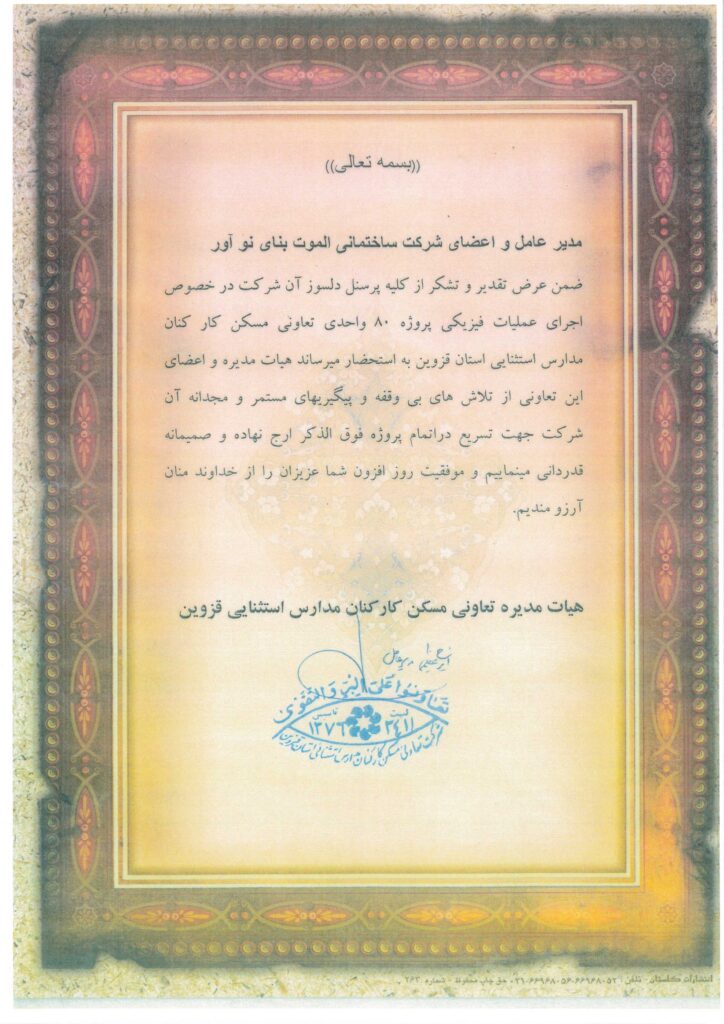 ((بسمه تعالی))
مدیر عامل و اعضای شرکت ساختمانی الموت بنای نو آور
ضمن عرض تقدیر و تشکر از کلیه پرسنل دلسوز آن شرکت در خصوص
اجرای عملیات فیزیکی پروژه ۸۰ واحدی تعاونی مسکن کار کنان
مدارس استثنایی استان قزوین به استحضار میرساند هیات مدیره و اعضای
این تعاونی از تلاش های بی وقفه و پیگیریهای مستمر و مجدانه آن
شرکت جهت تسریع دراتمام پروژه فوق الذکر ارج نهاده و صمیمانه
قدردانی مینماییم و موفقیت روز افزون شما عزیزان را از خداوند منان
آرزو مندیم.
هیات مدیره تعاونی مسکن کارکنان مدارس استثنایی قزوین
مدیر عامل
تعاونوا علی البر و التقوی
ثبت ۳۴۱۱
تاسیس ۱۳۷۶
شرکت تعاونی مسکن کارکنان مدارس استثنائی استان قزوین
انتشارات گلستان - تلفن : ۶۶۹۶۸۰۵۲-۶۶۹۶۸۰۵۶-۰۲۱ حق چاپ محفوظ - شماره ۲۶۳